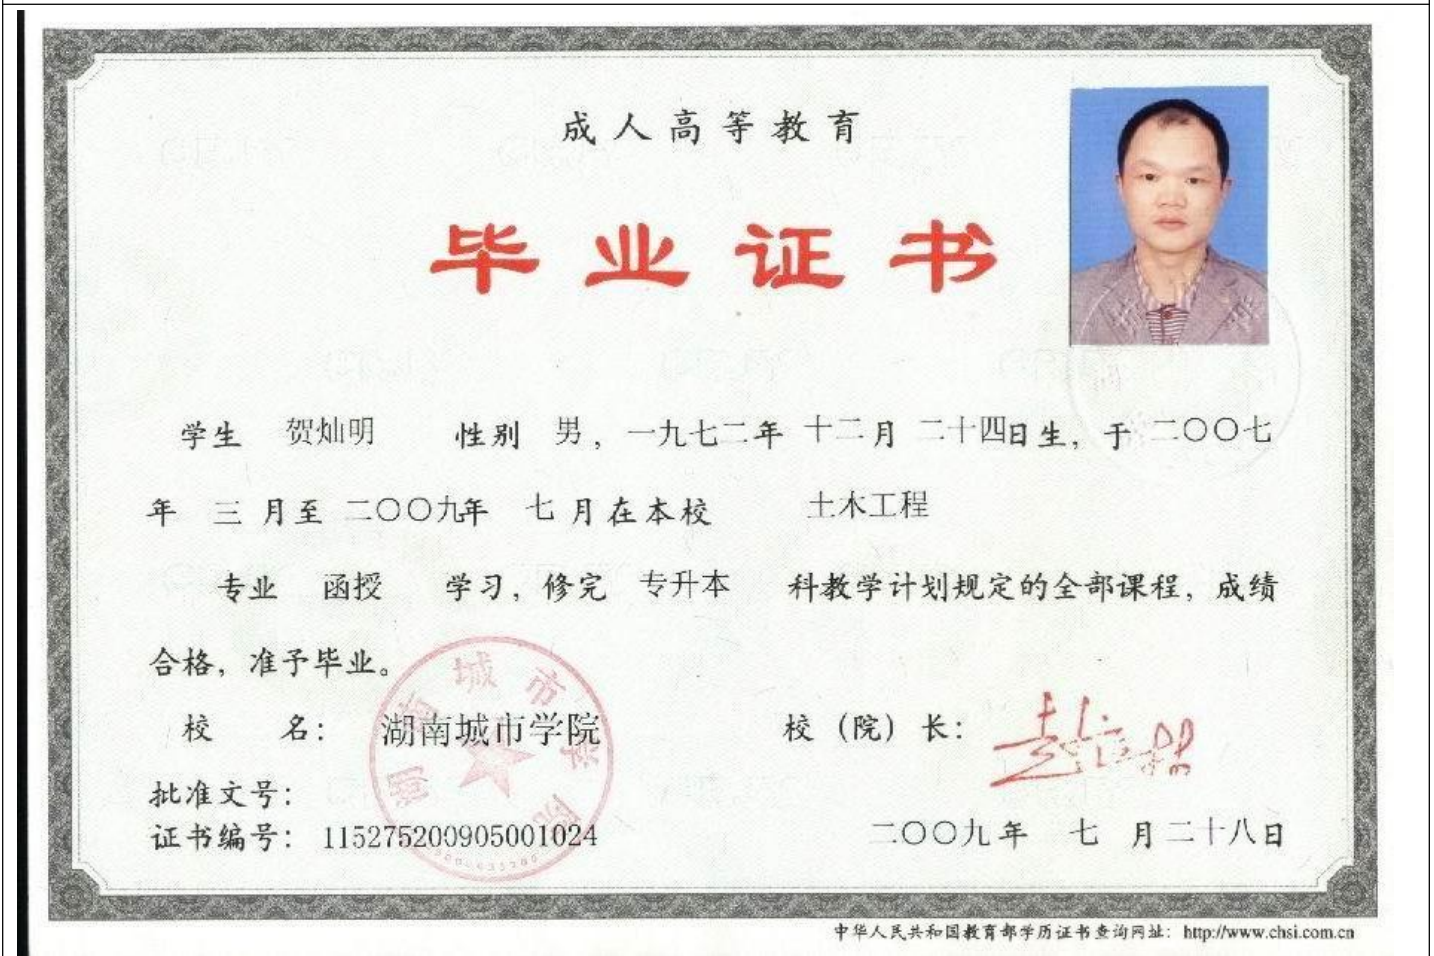 成人高等教育
毕业证书
学生 贺灿明 性别 男，一九七二年 十二月 二十四日生，于 二〇〇七
年 三 月至 二〇〇九年 七 月在本校 土木工程
专业 函授 学习，修完 专升本 科教学计划规定的全部课程，成绩
合格，准予毕业。
校 名： 湖南城市学院 校（院）长：
湖南城市学院
批准文号：
证书编号： 115275200905001024 二〇〇九年 七 月二十八日
中华人民共和国教育部学历证书查询网址：http://www.chsi.com.cn